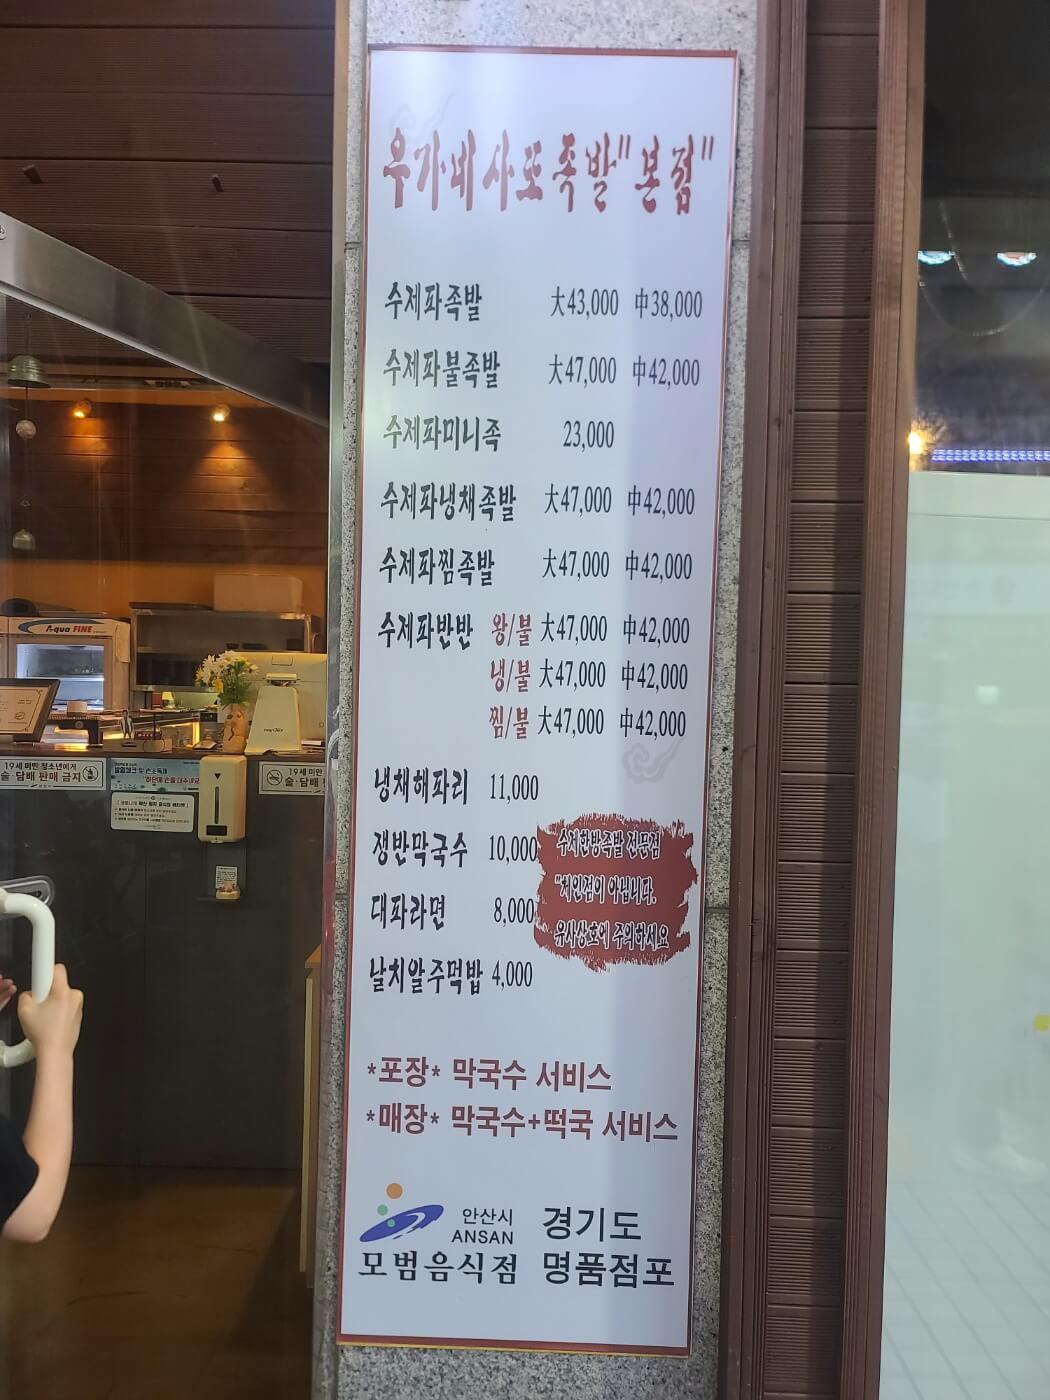 우가네사또족발"본점"
수제파족발 大43,000 中38,000
수제파불족발 大47,000 中42,000
수제파미니족 23,000
수제파냉채족발 大47,000 中42,000
수제파찜족발 大47,000 中42,000
수제파반반 왕/불 大47,000 中42,000
냉/불 大47,000 中42,000
찜/불 大47,000 中42,000
냉채해파리 11,000
쟁반막국수 10,000
대파라면 8,000
날치알주먹밥 4,000
수제한방족발 전문점
"체인점이 아닙니다.
유사상호에 주의하세요
*포장* 막국수 서비스
*매장* 막국수+떡국 서비스
안산시
ANSAN
모범음식점
경기도
명품점포
Aqua FINE
19세 미만 청소년에게
술·담배 판매 금지
19세 미만
술·담배